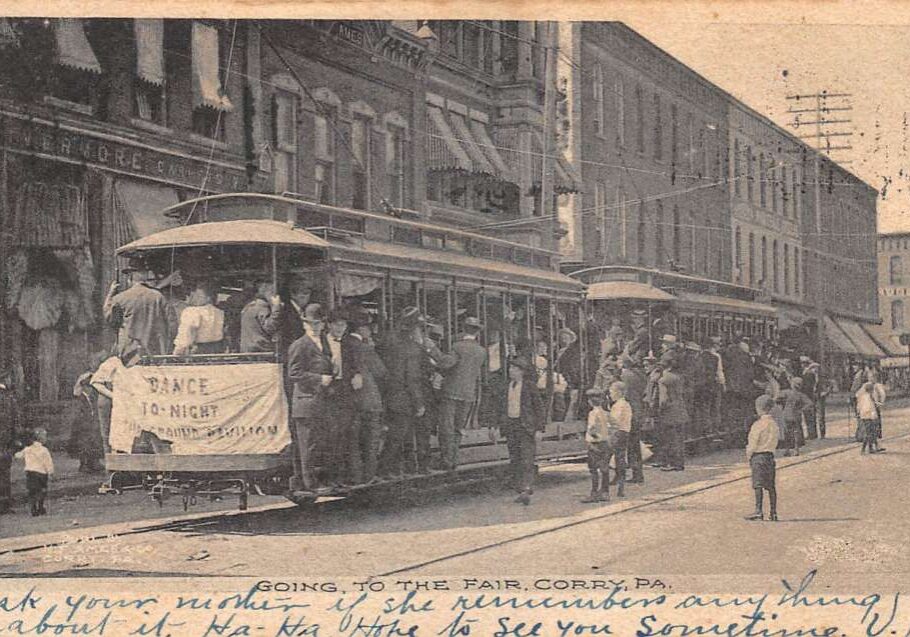 DANCE
TO-NIGHT
GROUND PAVILION
GOING, TO THE FAIR, CORRY, PA.
ask your mother if she remembers anything
about it. Ha-Ha Hope to see you Sometime V.